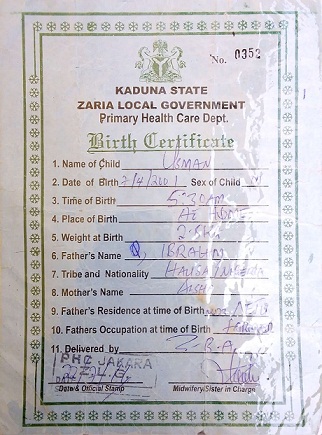 No. 0352
KADUNA STATE
ZARIA LOCAL GOVERNMENT
Primary Health Care Dept.
Birth Certificate
1. Name of Child USMAN
2. Date of Birth 2/4/2001 Sex of Child M
3. Time of Birth 5:30AM
4. Place of Birth AT HOME
5. Weight at Birth
6. Father's Name IBRAHIM
7. Tribe and Nationality HAUSA
8. Mother's Name
9. Father's Residence at time of Birth
10. Fathers Occupation at time of Birth
11. Delivered by
PHC JAKARA
Date & Official Stamp Midwifery/Sister in Charge